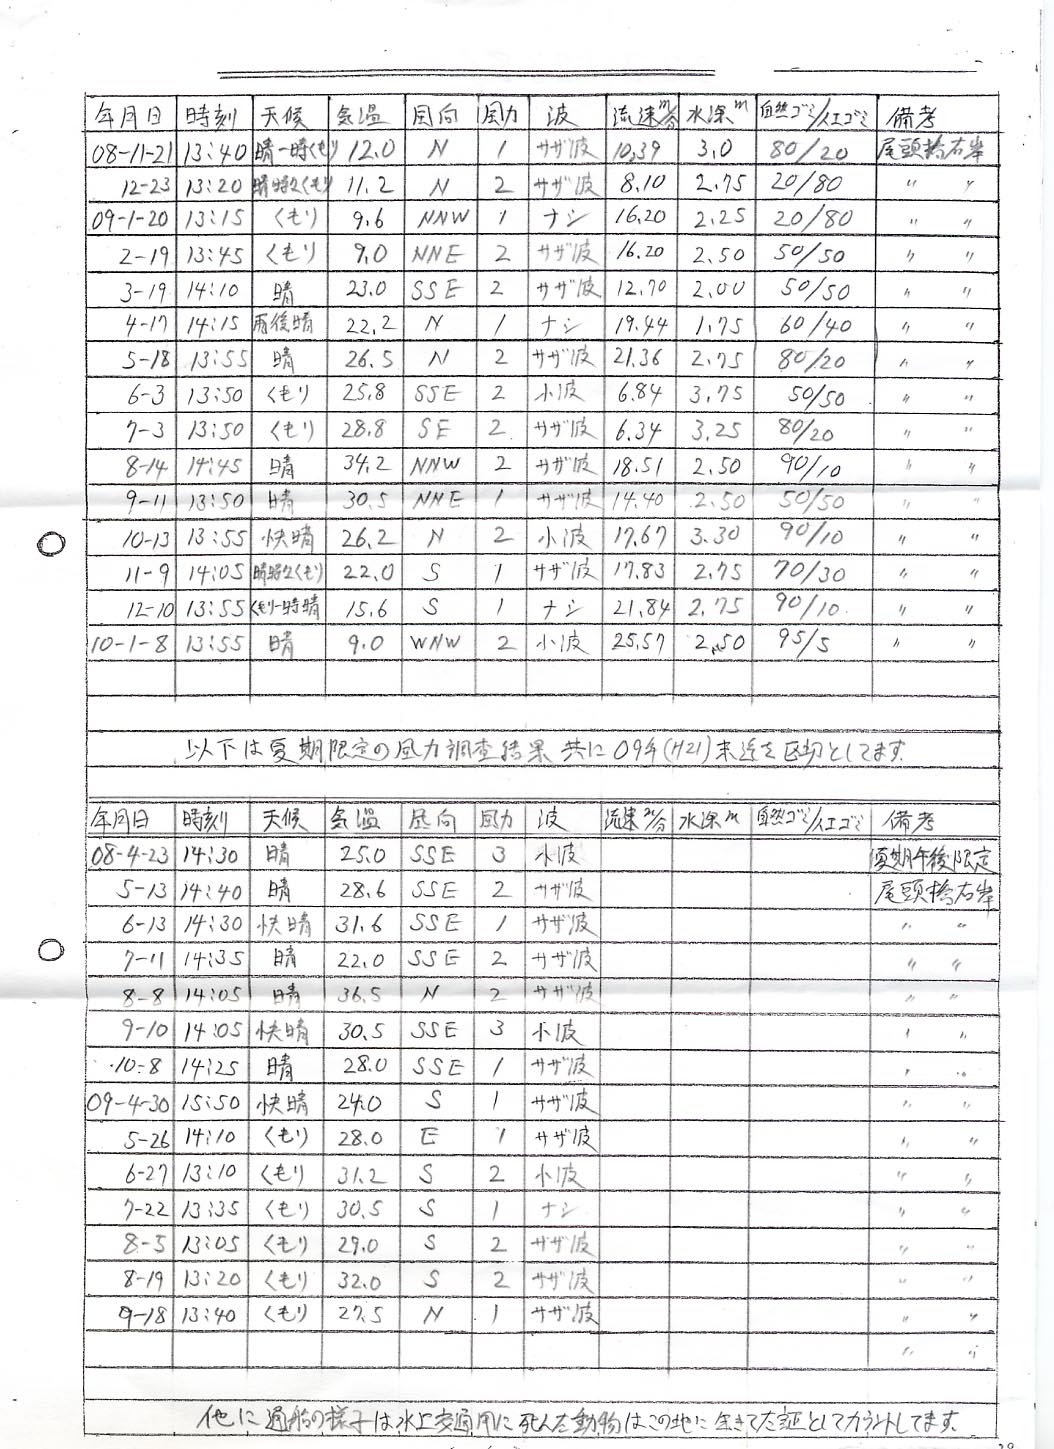 年月日 時刻 天候 気温 風向 風力 波 流速m/分 水深m 自然ゴミ/人工ゴミ 備考
08-11-21 13:40 晴一時くもり 12.0 N 1 サザ波 10.39 3.0 80/20 尾頭橋右岸
12-23 13:20 晴時々くもり 11.2 N 2 サザ波 8.10 2.75 20/80 〃 〃
09-1-20 13:15 くもり 9.6 NNW 1 ナシ 16.20 2.25 20/80 〃 〃
2-19 13:45 くもり 9.0 NNE 2 サザ波 16.20 2.50 50/50 〃 〃
3-19 14:10 晴 23.0 SSE 2 サザ波 12.70 2.00 50/50 〃 〃
4-17 14:15 雨後晴 22.2 N 1 ナシ 19.44 1.75 60/40 〃 〃
5-18 13:55 晴 26.5 N 2 サザ波 21.36 2.75 80/20 〃 〃
6-3 13:50 くもり 25.8 SSE 2 小波 6.84 3.75 50/50 〃 〃
7-3 13:50 くもり 28.8 SE 2 サザ波 6.34 3.25 80/20 〃 〃
8-14 14:45 晴 34.2 NNW 2 サザ波 18.51 2.50 90/10 〃 〃
9-11 13:50 晴 30.5 NNE 1 サザ波 14.40 2.50 50/50 〃 〃
10-13 13:55 快晴 26.2 N 2 小波 17.67 3.30 90/10 〃 〃
11-9 14:05 晴時々くもり 22.0 S 1 サザ波 17.83 2.75 70/30 〃 〃
12-10 13:55 くもり一時晴 15.6 S 1 ナシ 21.84 2.75 90/10 〃 〃
10-1-8 13:55 晴 9.0 WNW 2 小波 25.57 2.50 95/5 〃 〃
以下は夏期限定の風力調査結果 共に09年(H21)末迄を区切としてます
年月日 時刻 天候 気温 風向 風力 波 流速m/分 水深m 自然ゴミ/人工ゴミ 備考
08-4-23 14:30 晴 25.0 SSE 3 小波 夏期午後限定
5-13 14:40 晴 28.6 SSE 2 サザ波 尾頭橋右岸
6-13 14:30 快晴 31.6 SSE 1 サザ波 〃 〃
7-11 14:35 晴 22.0 SSE 2 サザ波 〃 〃
8-8 14:05 晴 36.5 N 2 サザ波 〃 〃
9-10 14:05 快晴 30.5 SSE 3 小波 〃 〃
10-8 14:25 晴 28.0 SSE 1 サザ波 〃 〃
09-4-30 15:50 快晴 24.0 S 1 サザ波 〃 〃
5-26 14:10 くもり 28.0 E 1 サザ波 〃 〃
6-27 13:10 くもり 31.2 S 2 小波 〃 〃
7-22 13:35 くもり 30.5 S 1 ナシ 〃 〃
8-5 13:05 くもり 29.0 S 2 サザ波 〃 〃
8-19 13:20 くもり 32.0 S 2 サザ波 〃 〃
9-18 13:40 くもり 27.5 N 1 サザ波 〃 〃
〃 〃
他に通船の様子は水上交通用に死んだ動物はこの地に生きてた証としてカウントしてます